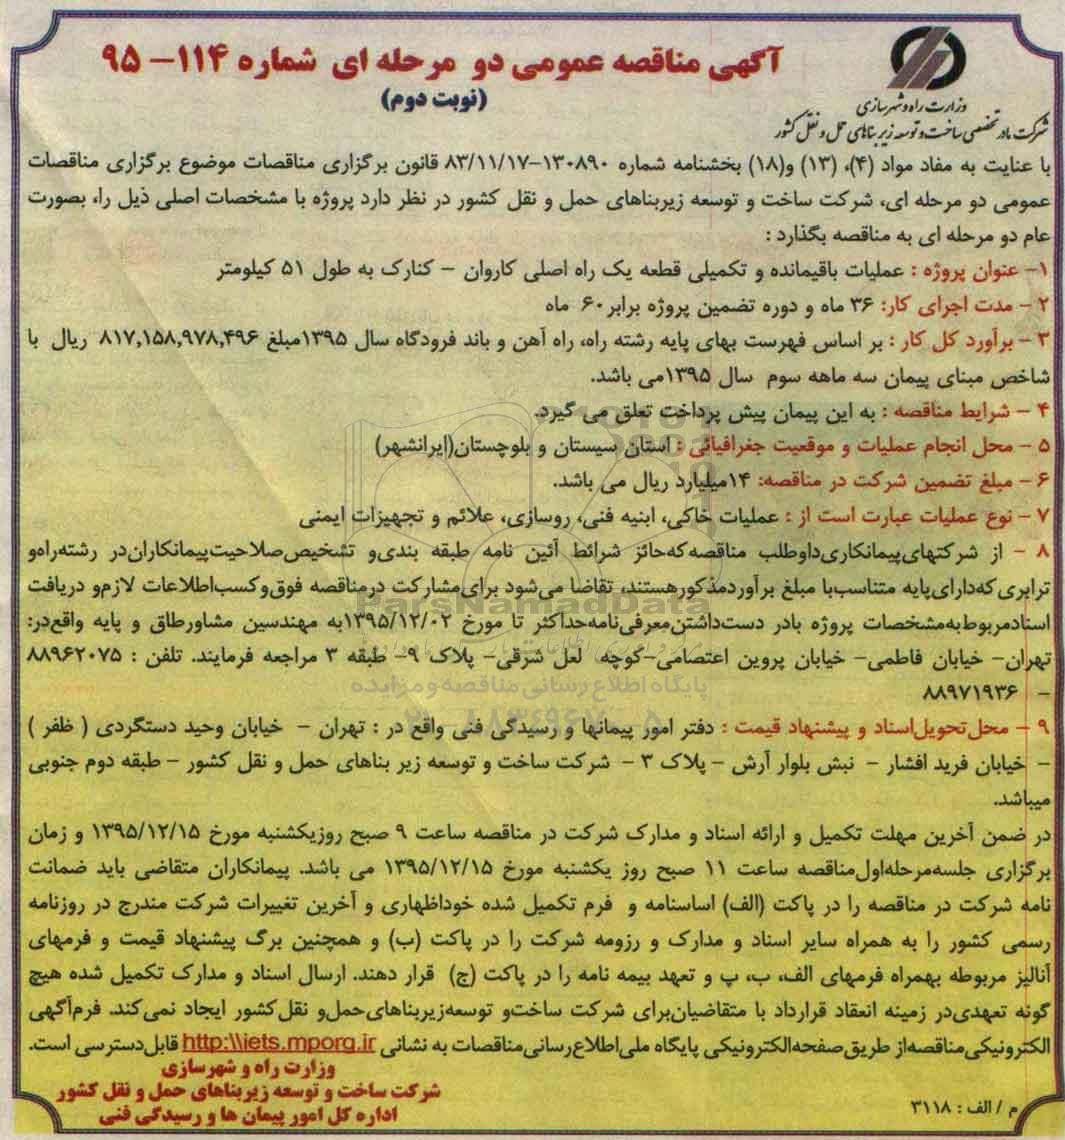 آگهی مناقصه عمومی دو مرحله ای شماره ۱۱۴- ۹۵
(نوبت دوم)
وزارت راه و شهرسازی
شرکت مادر تخصصی ساخت و توسعه زیربناهای حمل و نقل کشور
با عنایت به مفاد مواد (۴)، (۱۳) و(۱۸) بخشنامه شماره ۱۳۰۸۹۰-۸۳/۱۱/۱۷ قانون برگزاری مناقصات موضوع برگزاری مناقصات
عمومی دو مرحله ای، شرکت ساخت و توسعه زیربناهای حمل و نقل کشور در نظر دارد پروژه با مشخصات اصلی ذیل را، بصورت
عام دو مرحله ای به مناقصه بگذارد :
۱- عنوان پروژه : عملیات باقیمانده و تکمیلی قطعه یک راه اصلی کاروان – کنارک به طول ۵۱ کیلومتر
۲ – مدت اجرای کار: ۳۶ ماه و دوره تضمین پروژه برابر۶۰ ماه
۳ – برآورد کل کار : بر اساس فهرست بهای پایه رشته راه، راه آهن و باند فرودگاه سال ۱۳۹۵مبلغ ۸۱۷,۱۵۸,۹۷۸,۴۹۶ ریال با
شاخص مبنای پیمان سه ماهه سوم سال ۱۳۹۵می باشد.
۴ – شرایط مناقصه : به این پیمان پیش پرداخت تعلق می گیرد.
۵ – محل انجام عملیات و موقعیت جغرافیائی : استان سیستان و بلوچستان(ایرانشهر)
۶ – مبلغ تضمین شرکت در مناقصه: ۱۴میلیارد ریال می باشد.
۷ – نوع عملیات عبارت است از : عملیات خاکی، ابنیه فنی، روسازی، علائم و تجهیزات ایمنی
۸ – از شرکتهای‌پیمانکاری‌داوطلب مناقصه‌که‌حائز شرائط آئین نامه طبقه بندی‌و تشخیص‌صلاحیت‌پیمانکاران‌در رشته‌راه‌و
ترابری که‌دارای‌پایه متناسب‌با مبلغ برآوردمذکورهستند، تقاضا می‌شود برای‌مشارکت درمناقصه فوق‌وکسب‌اطلاعات لازم‌و دریافت
اسنادمربوط‌به‌مشخصات پروژه بادر دست‌داشتن‌معرفی‌نامه‌حداکثر تا مورخ ۱۳۹۵/۱۲/۰۲به مهندسین مشاورطاق و پایه واقع‌در:
تهران- خیابان فاطمی- خیابان پروین اعتصامی-کوچه لعل شرقی- پلاک ۹- طبقه ۳ مراجعه فرمایند. تلفن : ۸۸۹۶۲۰۷۵
- ۸۸۹۷۱۹۳۶
۹ – محل‌تحویل‌اسناد و پیشنهاد قیمت : دفتر امور پیمانها و رسیدگی فنی واقع در : تهران – خیابان وحید دستگردی ( ظفر )
– خیابان فرید افشار – نبش بلوار آرش – پلاک ۳ – شرکت ساخت و توسعه زیر بناهای حمل و نقل کشور – طبقه دوم جنوبی
میباشد.
در ضمن آخرین مهلت تکمیل و ارائه اسناد و مدارک شرکت در مناقصه ساعت ۹ صبح روزیکشنبه مورخ ۱۳۹۵/۱۲/۱۵ و زمان
برگزاری جلسه‌مرحله‌اول‌مناقصه ساعت ۱۱ صبح روز یکشنبه مورخ ۱۳۹۵/۱۲/۱۵ می باشد. پیمانکاران متقاضی باید ضمانت
نامه شرکت در مناقصه را در پاکت (الف) اساسنامه و فرم تکمیل شده خوداظهاری و آخرین تغییرات شرکت مندرج در روزنامه
رسمی کشور را به همراه سایر اسناد و مدارک و رزومه شرکت را در پاکت (ب) و همچنین برگ پیشنهاد قیمت و فرمهای
آنالیز مربوطه بهمراه فرمهای الف، ب، پ و تعهد بیمه نامه را در پاکت (ج) قرار دهند. ارسال اسناد و مدارک تکمیل شده هیچ
گونه تعهدی‌در زمینه انعقاد قرارداد با متقاضیان‌برای شرکت ساخت‌و توسعه‌زیربناهای‌حمل‌و نقل‌کشور ایجاد نمی‌کند. فرم‌آگهی
الکترونیکی‌مناقصه‌از طریق‌صفحه‌الکترونیکی پایگاه ملی‌اطلاع‌رسانی‌مناقصات به نشانی http:\\iets.mporg.ir قابل‌دسترسی است.
وزارت راه و شهرسازی
شرکت ساخت و توسعه زیربناهای حمل و نقل کشور
اداره کل امور پیمان ها و رسیدگی فنی
م / الف : ۳۱۱۸
ParsNamadData
پایگاه اطلاع رسانی مناقصه و مزایده